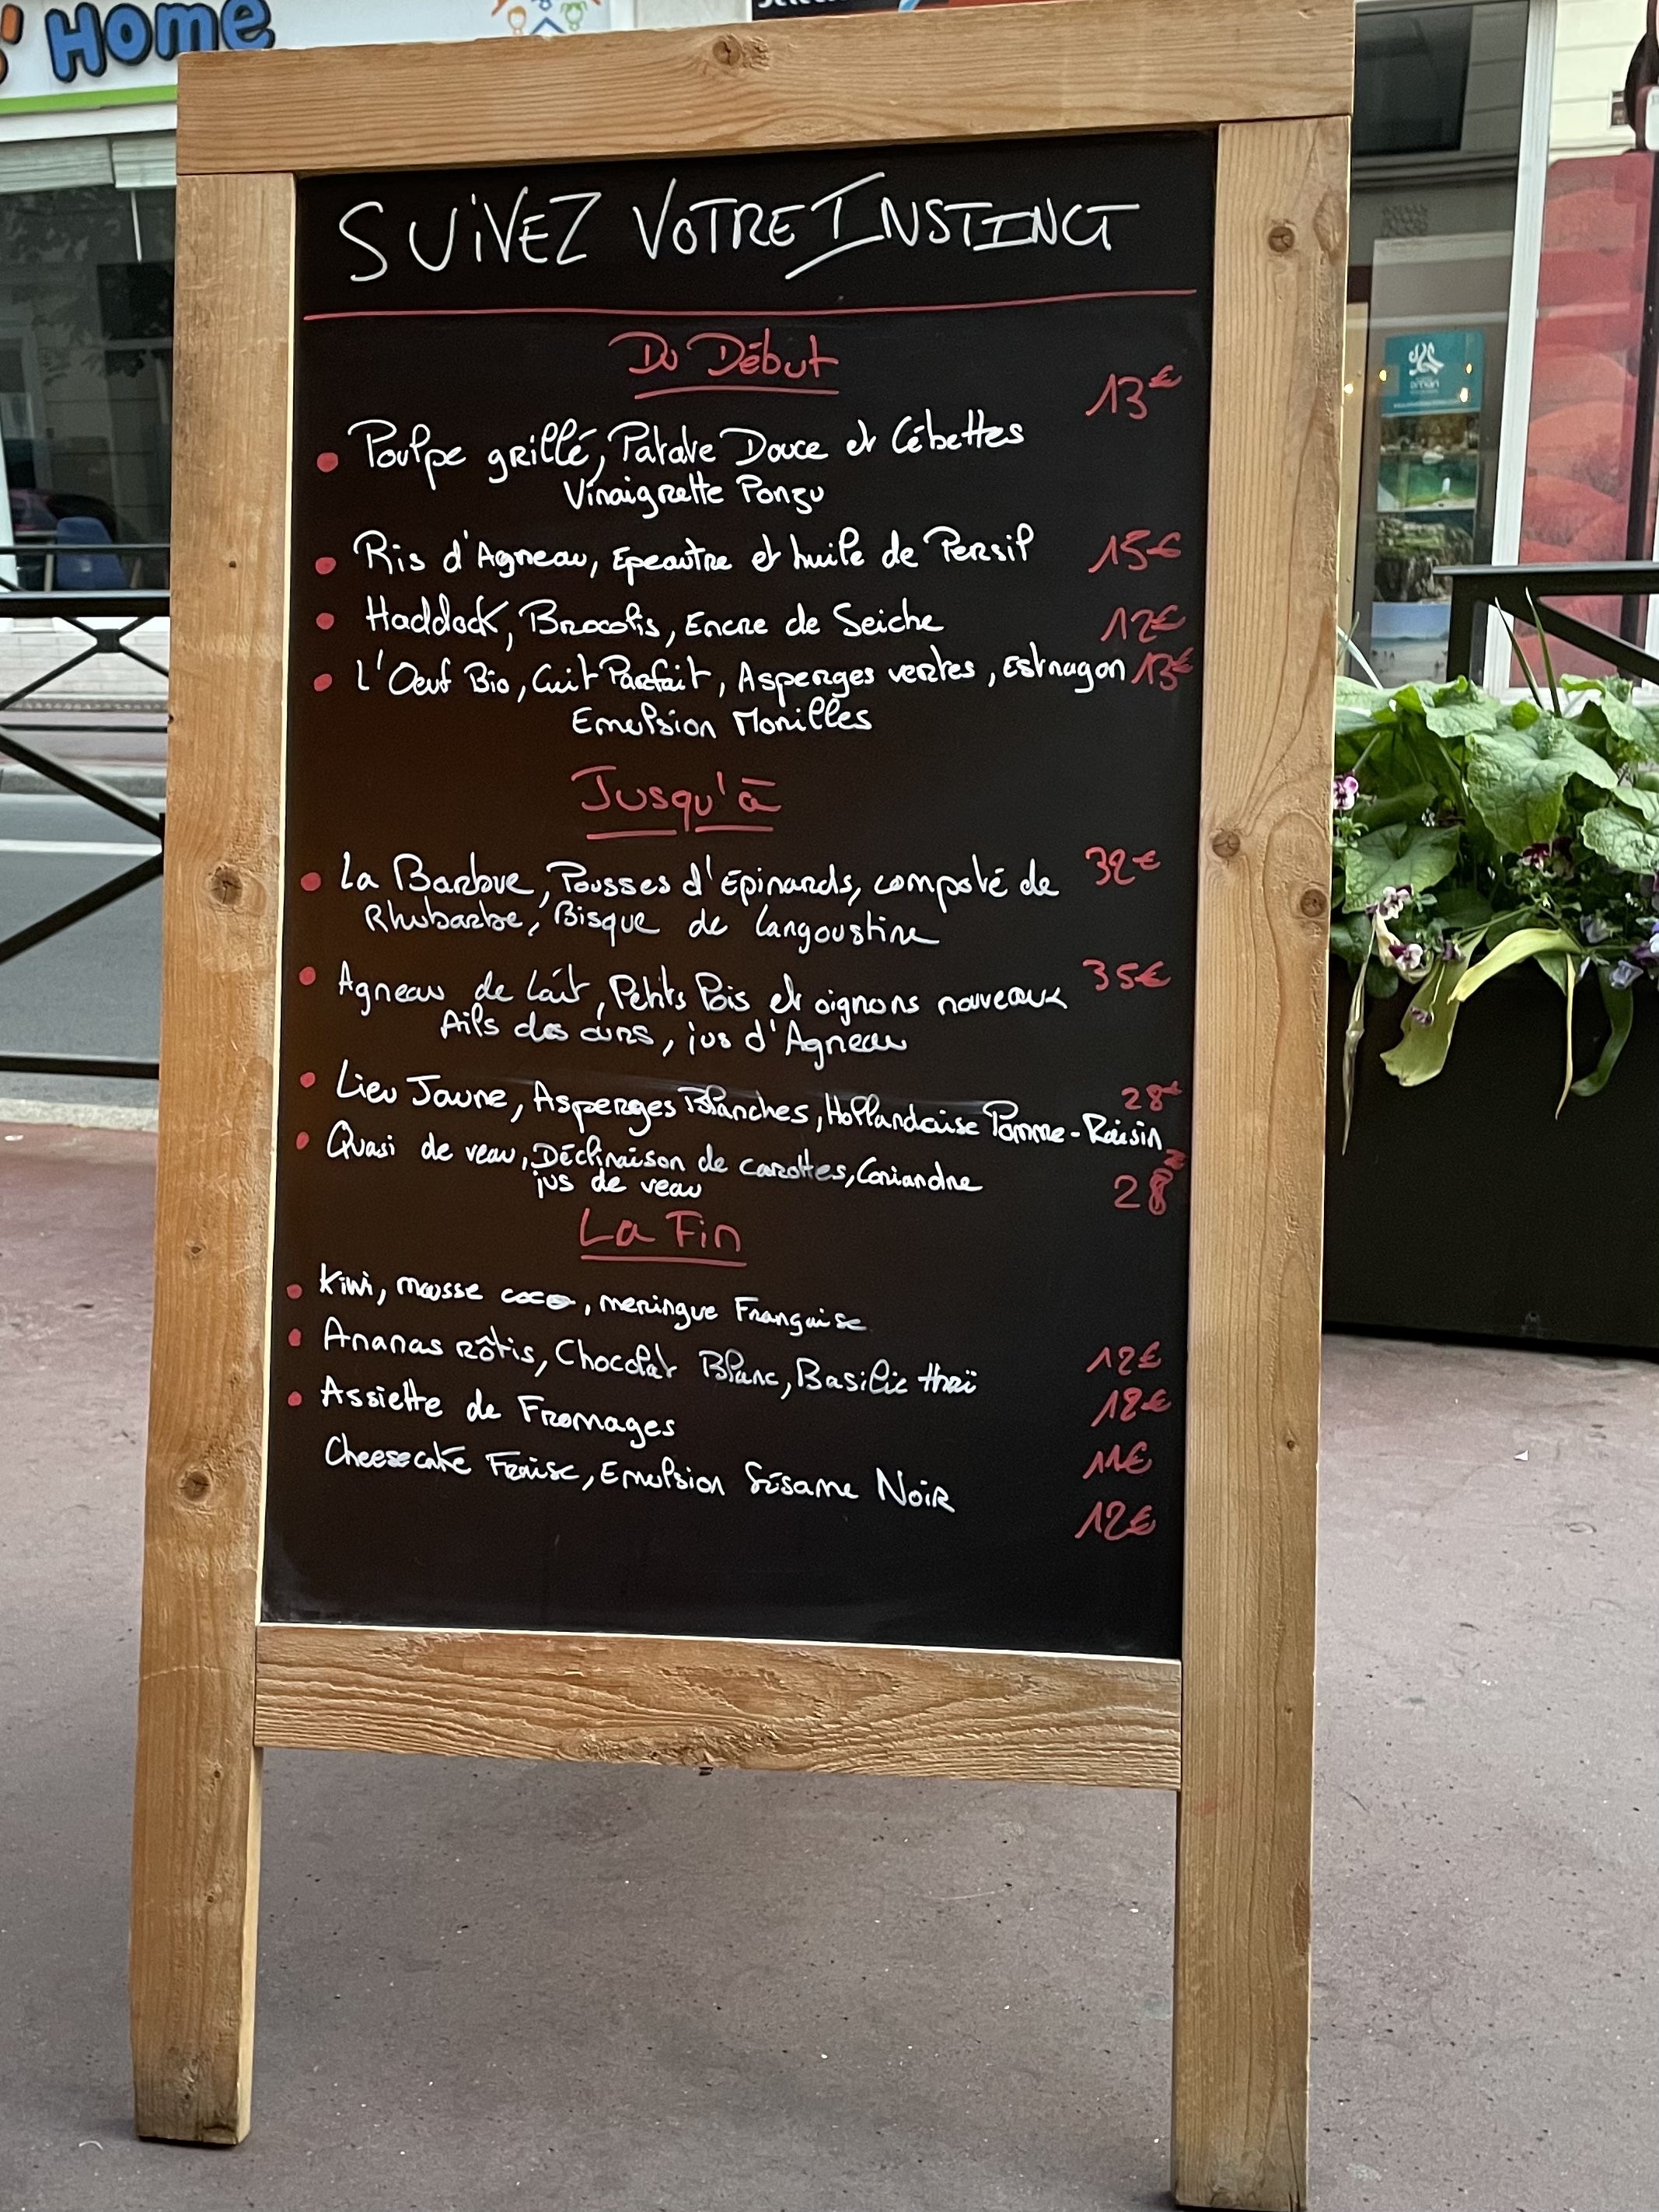 ' Home
SUiVEZ VOTRE INSTINCT
Du Début
Poulpe grillé, Patate Douce et Cébettes 13€
Vinaigrette Ponzu
Ris d'Agneau, Epeautre et huile de Persil 15€
Haddock, Brocolis, Encre de Seiche 12€
L'Oeuf Bio, Cuit Parfait, Asperges vertes, Estragon 13€
Emulsion Morilles
Jusqu'à
La Barbue, Pousses d'Epinards, compoté de 32€
Rhubarbe, Bisque de Langoustine
Agneau de Lait, Petits Pois et oignons nouveaux 35€
Ails des ours, jus d'Agneau
Lieu Jaune, Asperges Blanches, Hollandaise Pomme-Raisin 28€
Quasi de veau, Déclinaison de carottes, Coriandre 28
jus de veau
La Fin
Kiwi, mousse coco, meringue Française 12€
Ananas rôtis, Chocolat Blanc, Basilic thaï 12€
Assiette de Fromages 11€
Cheesecake Fraise, Emulsion Sésame Noir 12€